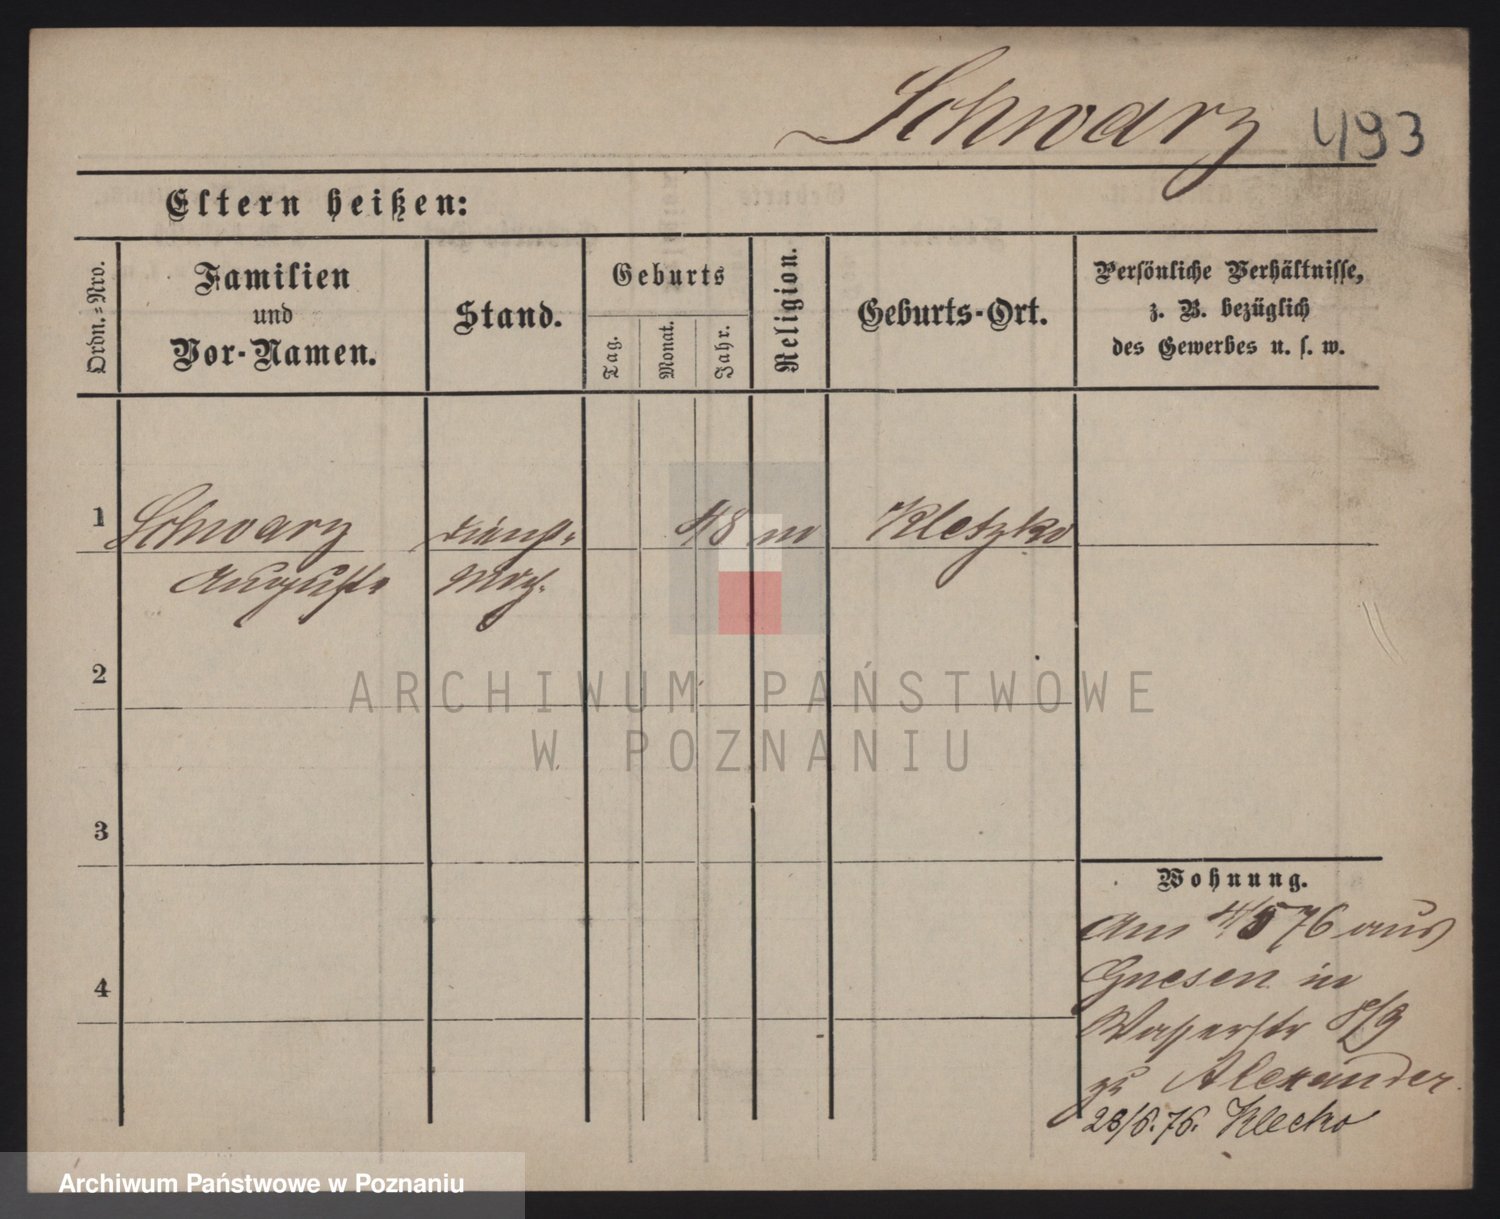 Schwarz 493
Eltern heißen:
Ordn.-Nro.
Familien
und
Vor-Namen.
Stand.
Geburts
Tag.
Monat.
Jahr.
Religion.
Geburts-Ort.
Persönliche Verhältnisse,
z. B. bezüglich
des Gewerbes u. s. w.
1 Schwarz Dienst- 48 m Kletzko
Auguste
2
3
4
Wohnung.
Am 4/5 76 aus
Gnesen in
Wasserstr 8/9
zu Alexander
28/6.76. Klecko
ARCHIWUM PAŃSTWOWE
W POZNANIU
Archiwum Państwowe w Poznaniu